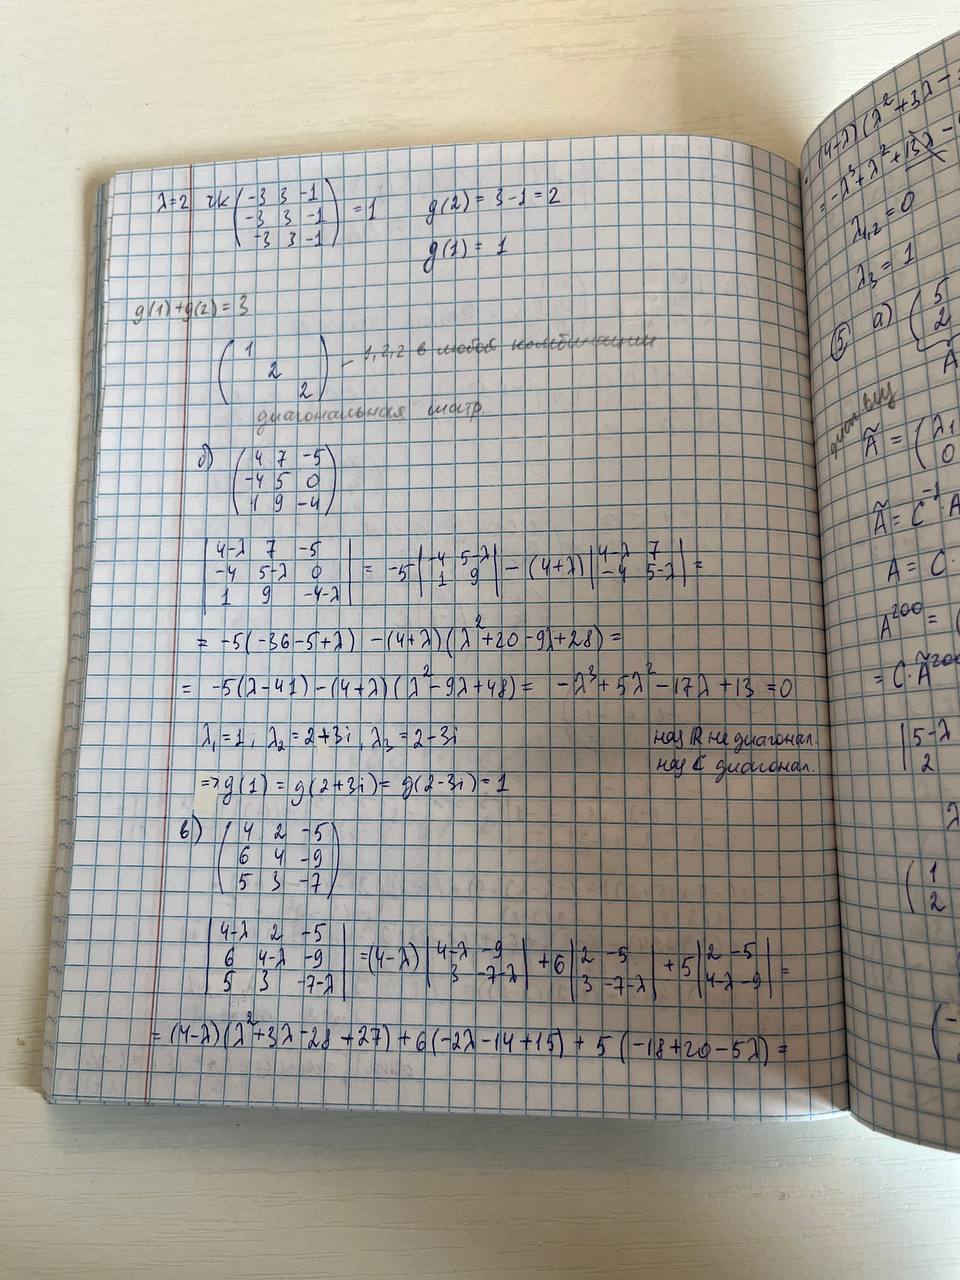 λ=2 rk (-3 3 -1) = 1 g(2) = 3-1 = 2
(-3 3 -1)
(-3 3 -1) g(1) = 1
g(1)+g(2) = 3
(1
2
2) - 1,2,2 в любой комбинации
диагональная матр.
б) (4 7 -5)
(-4 5 0)
(1 9 -4)
|4-λ 7 -5|
|-4 5-λ 0| = -5 |-4 5-λ| - (4+λ) |4-λ 7| =
|1 9 -4-λ| |1 9| |-4 5-λ|
= -5(-36-5+λ) - (4+λ)(λ²+20-9λ+28) =
= -5(λ-41) - (4+λ)(λ²-9λ+48) = -λ³+5λ²-17λ+13 = 0
λ₁=1; λ₂=2+3i, λ₃=2-3i над R не диагонал.
над C диагонал.
=> g(1) = g(2+3i) = g(2-3i) = 1
в) (4 2 -5)
(6 4 -9)
(5 3 -7)
|4-λ 2 -5|
|6 4-λ -9| = (4-λ) |4-λ -9| +6 |2 -5| +5 |2 -5| =
|5 3 -7-λ| |3 -7-λ| |3 -7-λ| |4-λ -9|
= (4-λ)(λ²+3λ-28+27) + 6(-2λ-14+15) + 5(-18+20-5λ) =
(4+λ)(λ²+3λ-
= -λ³+λ²+13λ-
λ₁,₂ = 0
λ₃ = 1
⑤ а) (5
2
A
диаг. вид
Ã = (λ₁
0
Ã = C⁻¹·A
A = C·
A²⁰⁰ = (
= C·Ã²⁰⁰
|5-λ
|2
λ
(1
2
(-